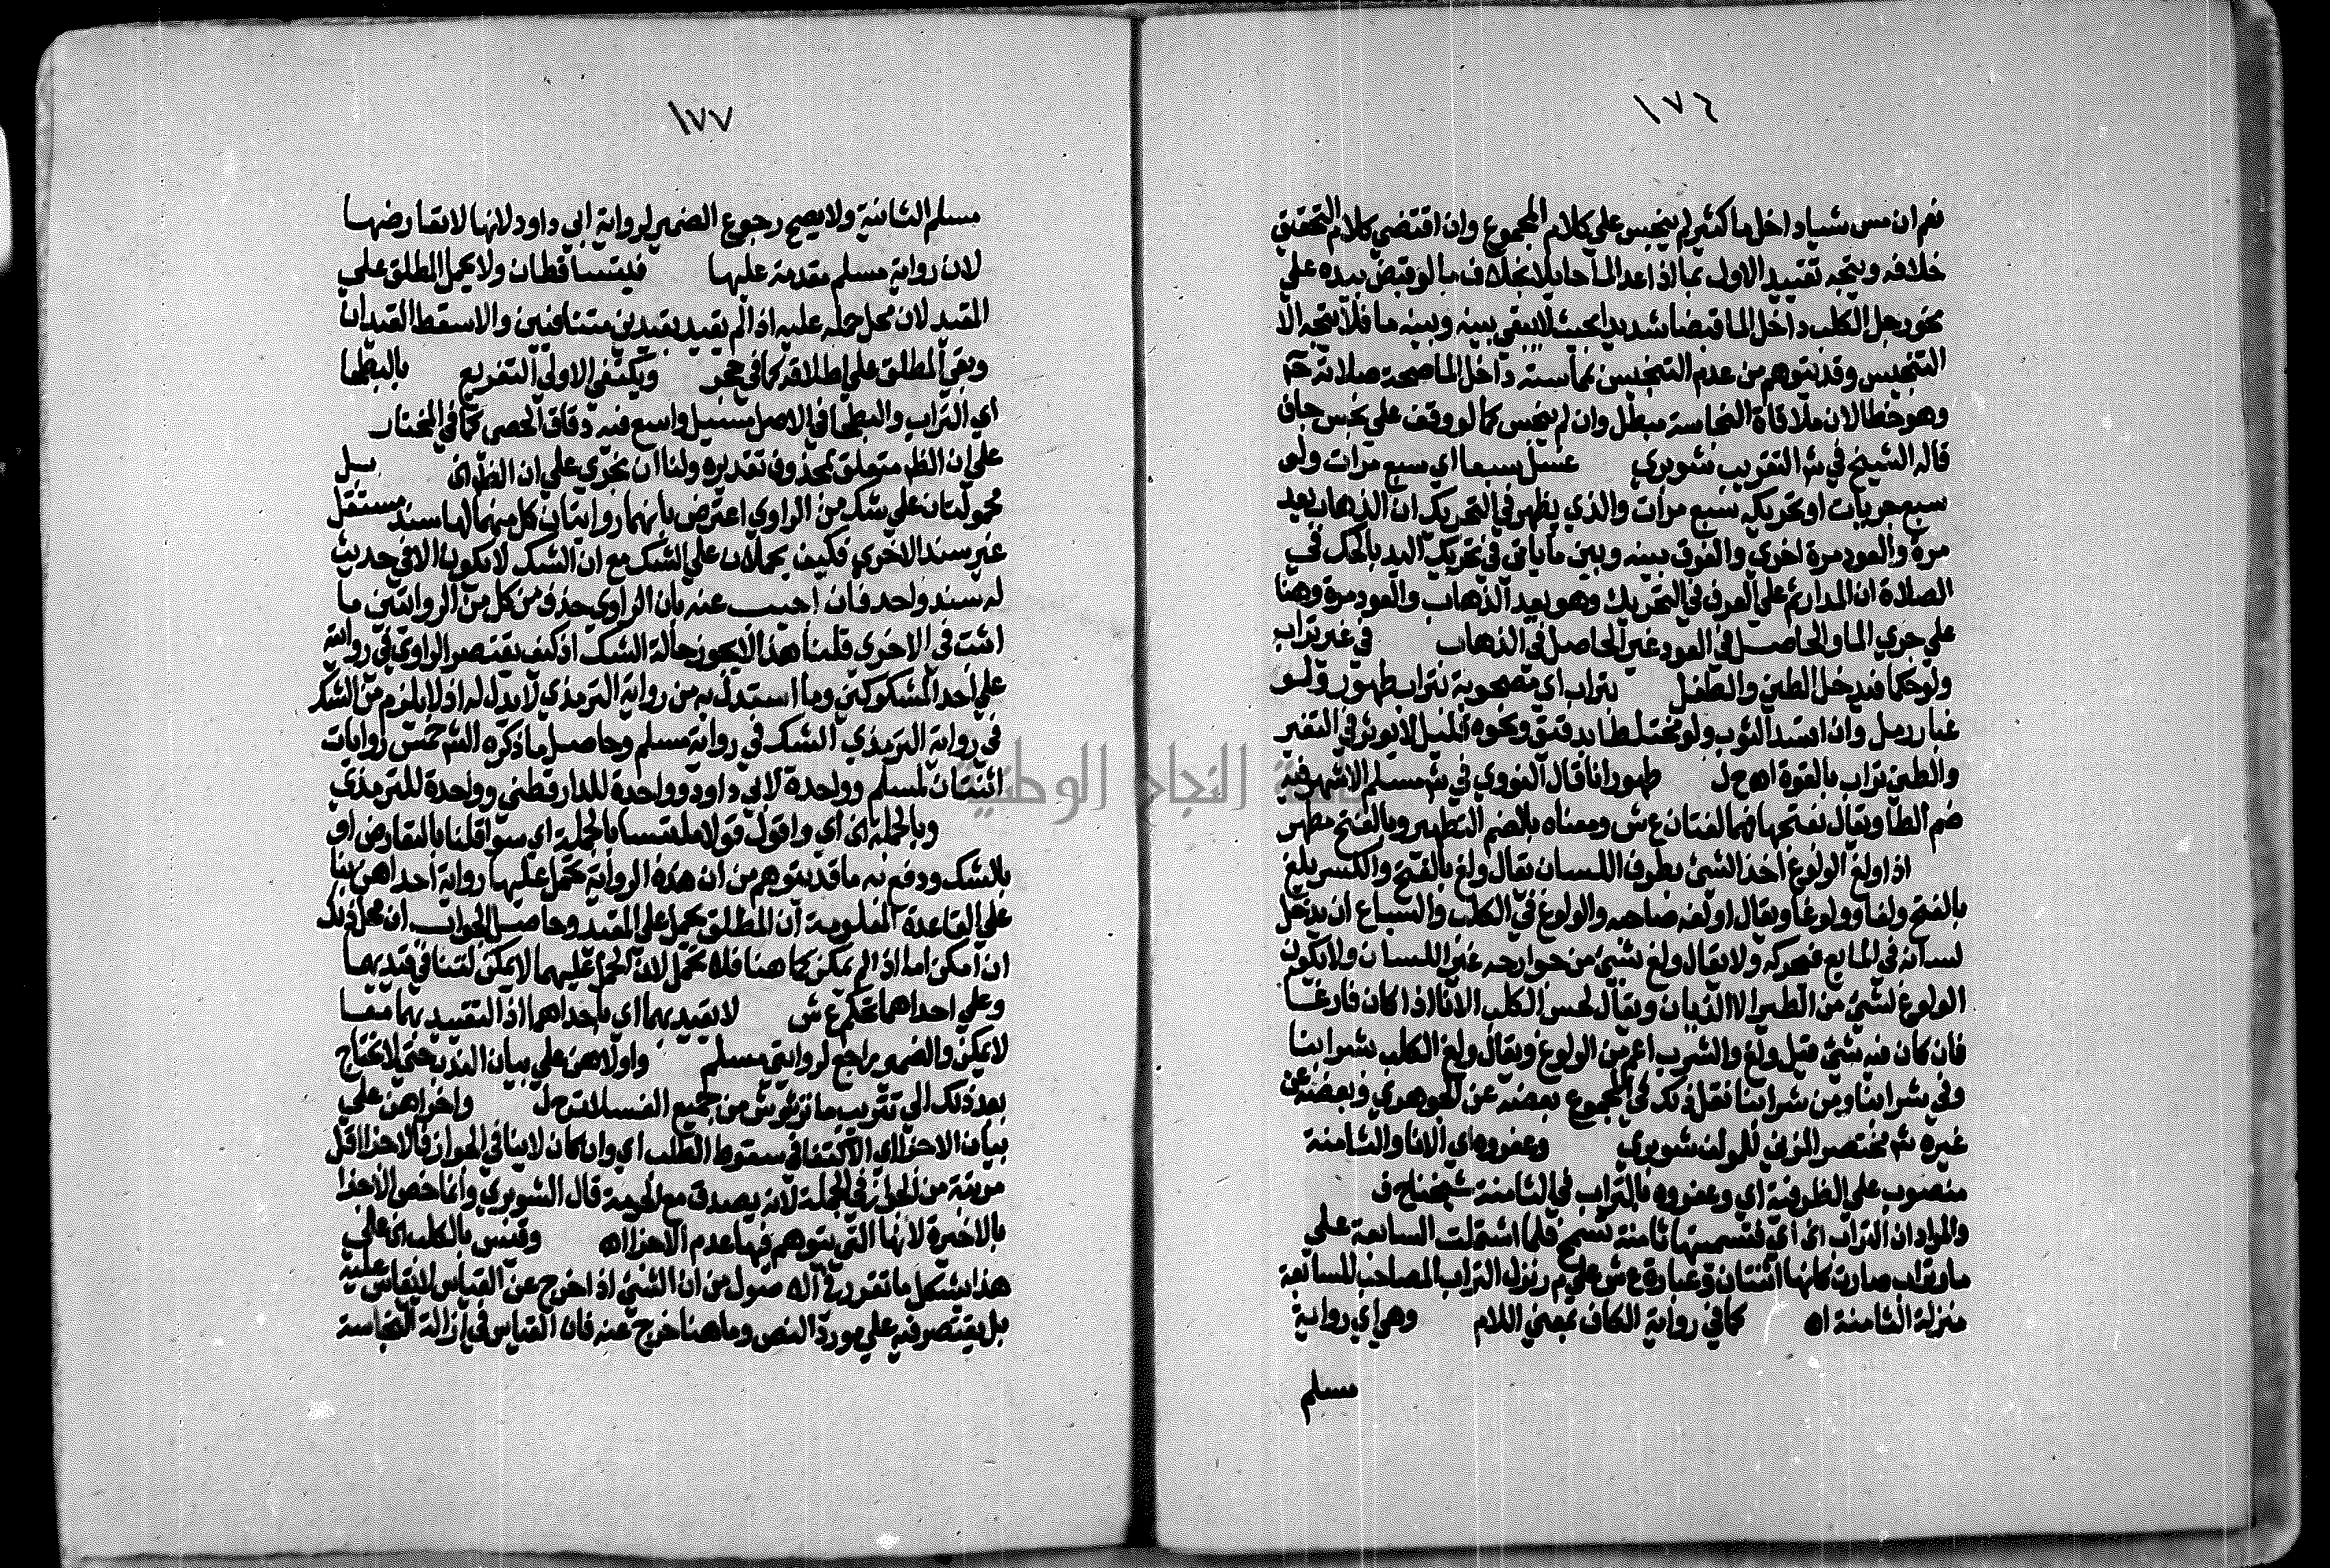 ١٧٦
نعم ان مس شيا داخل ما كثير لم ينجس على كلام المجموع وان اقتضى كلام التحقيق
خلافه ويتجه تقييد الاول بما اذا عد الما حايلا بخلاف ما لو قبض بيده على
نحو رجل الكلب داخل الما قبضا شديدا بحيث لا يبقى بينه وبينه ما فلا يتجه الا
التنجيس وقد يتوهم من عدم التنجيس بمماسته داخل الما صحة صلاته
وهو خطا لان ملاقاة النجاسة مبطل وان لم ينجس كما لو وقف على نجس جاف
قاله الشيخ في ش التقريب شوبري غسل سبعا اي سبع مرات ولو
سبع جريات او تحريكه سبع مرات والذي يظهر في التحريك ان الذهاب يعد
مرة والعود مرة اخرى والفرق بينه وبين ما ياتي في تحريك اليد بالحك في
الصلاة ان المدار ثم على العرف في التحريك وهو يعد الذهاب والعود مرة وهنا
على جري الما والحاصل في العود غير الحاصل في الذهاب في غير تراب
ولو حكما فيدخل الطين والطفل بتراب اي مصحوبة بتراب طهور ولو
غبار رمل وان افسد الثوب ولو مختلطا بدقيق ونحوه قليل لا يوثر في التغير
والطين تراب بالقوة اه ح ل طهور انا قال النووي في ش مسلم الاشهر فيه
ضم الطا ويقال بفتحها فهما لغتان ع ش ومعناه بالضم التطهير وبالفتح مطهر
اذا ولغ الولوغ اخذ الشئ بطرف اللسان يقال ولغ بالفتح والكسر يلغ
بالفتح ولغا وولوغا ويقال اولغه صاحبه والولوغ في الكلب والسباع ان يدخل
لسانه في المايع فيحركه ولا يقال ولغ بشئ من جوارحه غير اللسان ولا يكون
الولوغ لشئ من الطير الا الذباب ويقال لحس الكلب الانا اذا كان فارغا
فان كان فيه شئ قيل ولغ والشرب اعم من الولوغ ويقال ولغ الكلب شرابنا
وفي شرابنا ومن شرابنا نقل ذلك في المجموع بعضه عن الجوهري وبعضه عن
غيره ش مختصر المزني للمولف شوبري وعفروه اي الانا والثامنة
منصوب على الظرفية اي وعفروه بالتراب في الثامنة شيخنا ح ف
والمراد ان التراب الخ اي فتسميتها ثامنة تسمح فلما اشتملت السابعة على
ما وتراب صارت كانها اثنتان وعبارة ع ش على م ر نزل التراب المصاحب للسابعة
منزلة الثامنة اه كما في رواية الكاف بمعنى اللام وهي اي رواية
مسلم
١٧٧
مسلم الثانية ولا يصح رجوع الضمير لرواية ابي داود لانها لا تعارضها
لان رواية مسلم مقدمة عليها فيتساقطان ولا يحمل المطلق على
المقيد لان محل حمله عليه اذا لم يقيد بقيدين متنافيين والا سقط القيدان
وبقي المطلق على اطلاقه كما في حجر ويكتفي الاولى التفريع بالبطحا
اي التراب والبطحا في الاصل مسيل واسع فيه دقاق الحصى كما في المختار
على ان الظ متعلق بمحذوف تقديره ولنا ان نجري على ان الظ الخ بل
محمولتان على شك من الراوي اعترض بانهما روايتان كل منهما لها سند مستقل
غير سند الاخرى فكيف يحملان على الشك مع ان الشك لا يكون الا في حديث
له سند واحد فان اجيب عنه بان الراوي حذف من كل من الروايتين ما
اثبت في الاخرى قلنا هذا لا يجوز حالة الشك اذ كيف يقتصر الراوي في رواية
على احد المشكوكين وما استدل به من رواية الترمذي لا يدل له اذ لا يلزم من الشك
في رواية الترمذي الشك في رواية مسلم وحاصل ما ذكره الش خمس روايات
اثنتان لمسلم وواحدة لابي داود وواحدة للدارقطني وواحدة للترمذي
وبالجملة الخ اي واقول قولا ملتبسا بالجملة اي سوا قلنا بالتعارض او
بالشك ودفع به ما قد يتوهم من ان هذه الرواية تحمل عليها رواية احداهن بنا
على القاعدة المعلومة ان المطلق يحمل على المقيد وحاصل الجواب ان محل ذلك
ان امكن اما اذا لم يمكن كما هنا فلا تحمل لان الحمل عليهما لا يمكن لتنافي قيديهما
وعلى احداهما تحكم ع ش لا تقيد بهما اي باحداهما اذ التقييد بهما معا
لا يمكن والضمير راجع لروايتي مسلم واولاهن على بيان الندب حتى لا يحتاج
بعد ذلك الى تتريب ما ترشرش من جميع الغسلات ح ل واخراهن على
بيان الاجزا اي الاكتفا في سقوط الطلب اي وان كان لا ينافي الجواز فالاجزا اقل
مرتبة من الجواز في الجملة لانه يصدق مع الحرمة قال الشوبري وانما خص الاجزا
بالاخيرة لانها التي يتوهم فيها عدم الاجزا اه وقيس بالكلب الخ على
هذا يشكل ما تقرر في الاصول من ان الشئ اذا خرج عن القياس لا يقاس عليه
بل يقتصر فيه على مورد النص وما هنا خرج عنه فان القياس في ازالة النجاسة